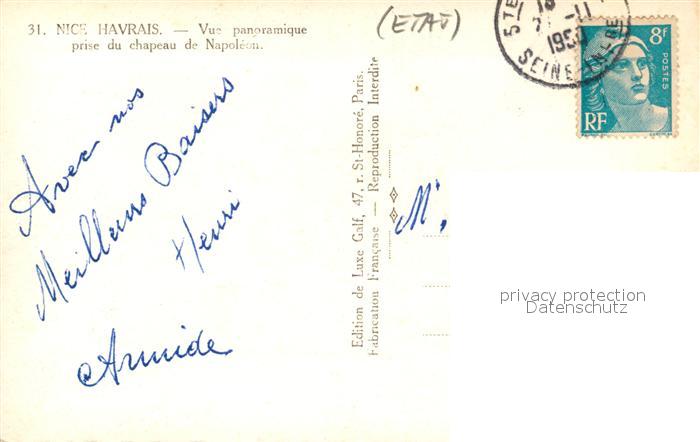 31. NICE HAVRAIS. — Vue panoramique
prise du chapeau de Napoléon.
(ETAT)
STE
18
-11
1950
SEINE-INFRE
8f
POSTES
RF
Avec nos
Meilleurs Baisers
Henri
Armide
Edition de Luxe Galf, 47, r. St-Honoré, Paris.
Fabrication Française — Reproduction Interdite
M.
privacy protection
Datenschutz